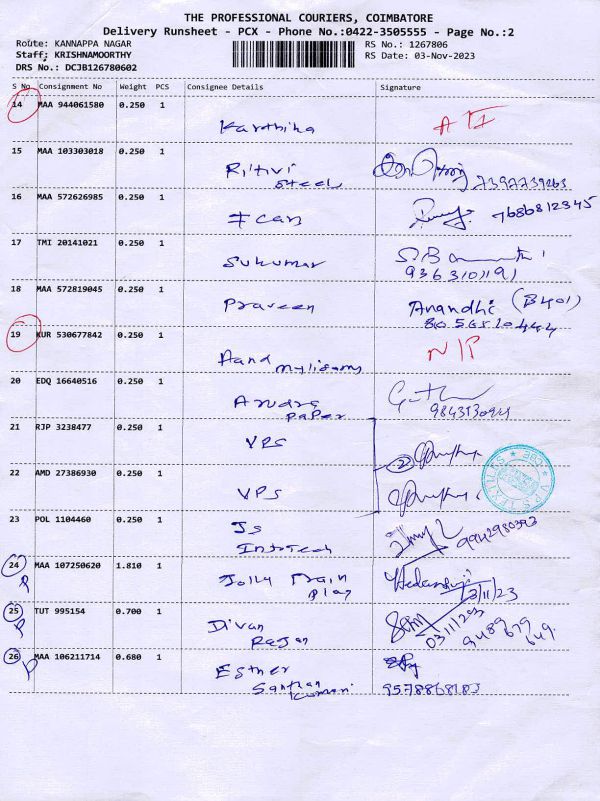 THE PROFESSIONAL COURIERS, COIMBATORE
Delivery Runsheet - PCX - Phone No.:0422-3505555 - Page No.:2
Route: KANNAPPA NAGAR
RS No.: 1267806
Staff: KRISHNAMOORTHY
RS Date: 03-Nov-2023
DRS No.: DCJB126780602
S No. Consignment No Weight PCS Consignee Details Signature
14 MAA 944061580 0.250 1
Karthika
15 MAA 103303018 0.250 1
Ritivi
Steel 7397739263
16 MAA 572626985 0.250 1
Ican 7686812345
17 TMI 20141021 0.250 1
Sukumar
18 MAA 572819045 0.250 1
Praveen Anandhi (B401)
19 KUR 530677842 0.250 1
Aand N/P
20 EDQ 16640516 0.250 1
Paper
21 RJP 3238477 0.250 1
VPS
22 AMD 27386930 0.250 1
VPS
23 POL 1104460 0.250 1
Js
Infotech 9942980393
24 MAA 107250620 1.810 1
P Jolly Train
Play 3/11/23
25 TUT 995154 0.700 1
P Divan
Rajan 03/11/203
26 MAA 106211714 0.680 1
P Esther
Santhan
Kumari 9578868183